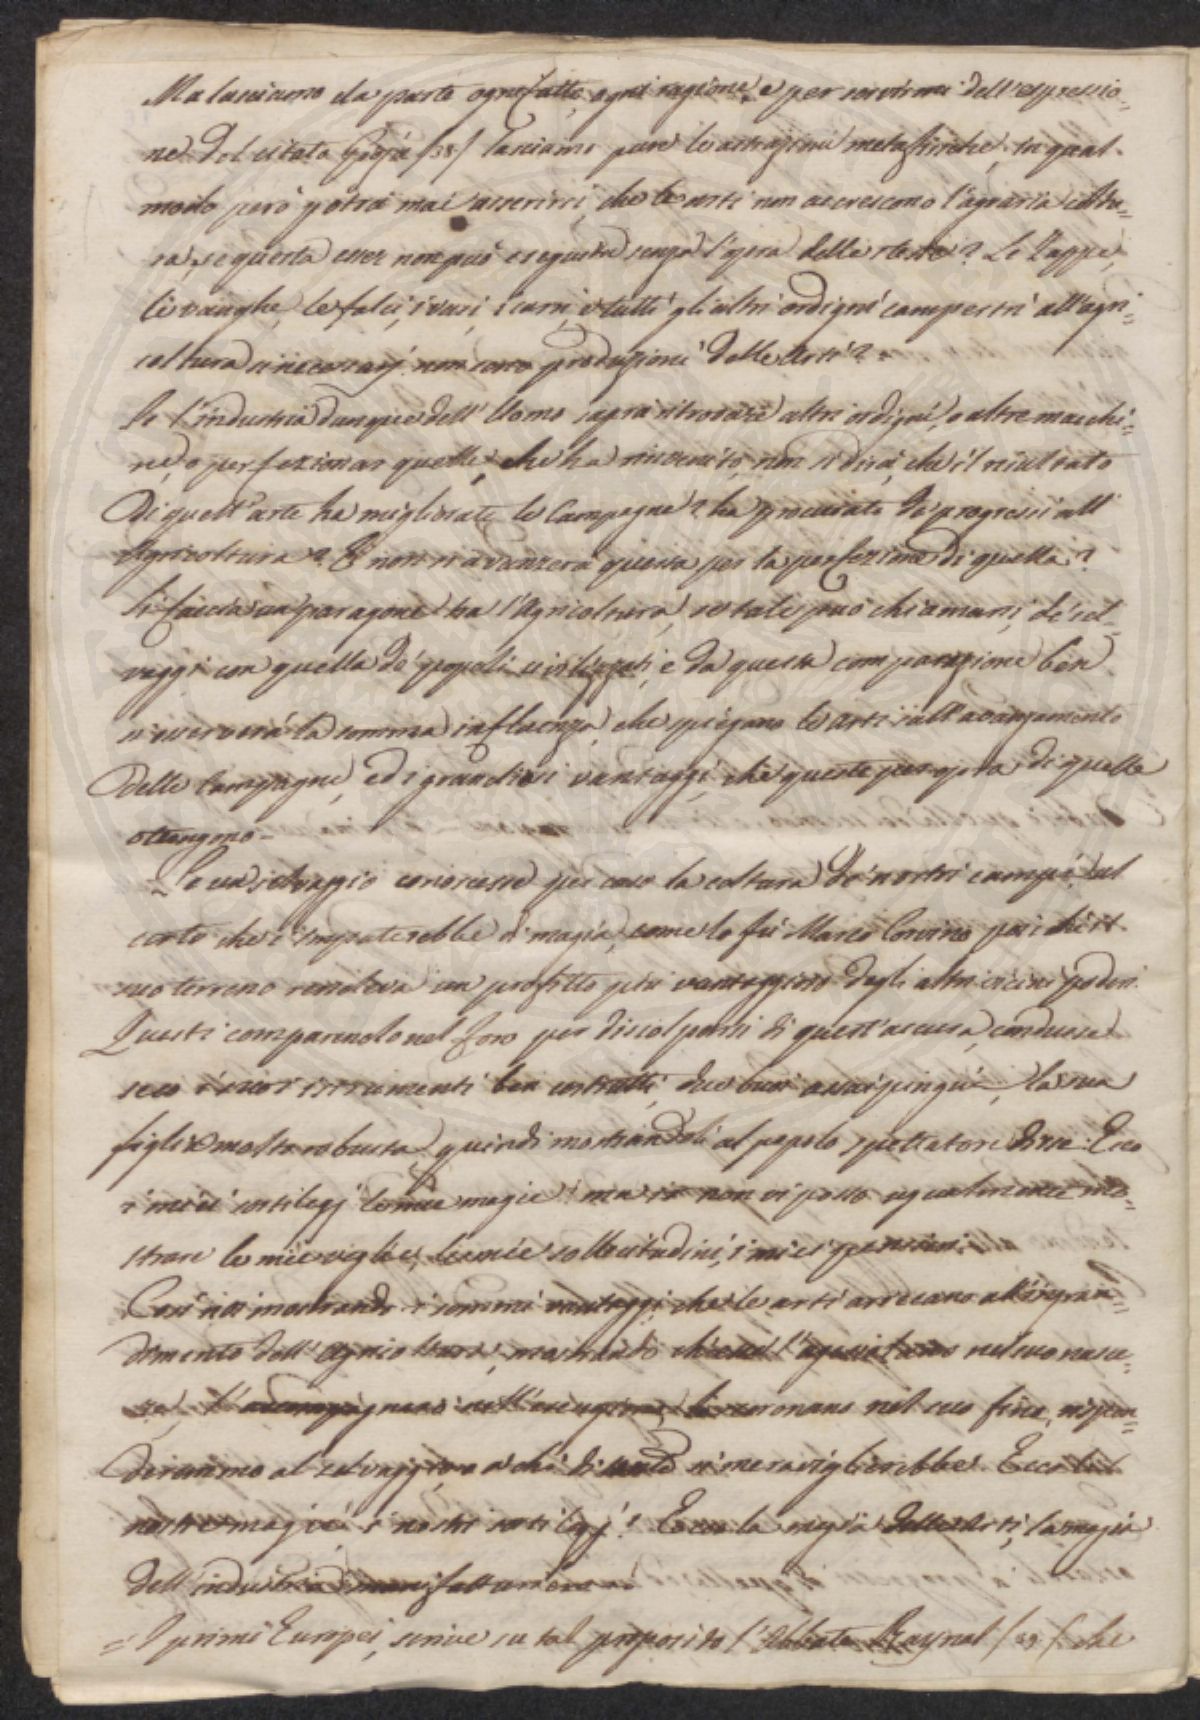 Ma lasciamo da parte ogni fatto, ogni ragione, e per servirmi dell'espressio=
ne del citato Gioja /38/ lasciamo pure le astrazioni metafisiche, in qual
modo però potrà mai asserirsi, che le arti non accrescono l'agraria coltu=
ra, se questa esser non può eseguita senza l'opera delle stesse? Le Zappe,
le vanghe, le falci, i vasi, i carri, e tutti gli altri ordigni campestri all'agri=
coltura necessarj non sono produzioni delle Arti?
Se l'industria dunque dell'Uomo saprà ritrovare altri ordigni, o altre macchi=
ne, o perfezionar quelle, che ha rinvenito, non si dirà, che il risultato
di quell'arte ha migliorate le Campagne? ha procurato de' progressi all'
Agricoltura? E non si avanzerà questa per la perfezione di quella?
Si faccia un paragone tra l'Agricoltura, se tale può chiamarsi, de' sel=
vaggi con quella de' popoli civilizzati, e da questa comparazione ben
si scorgerà la somma influenza, che spiegano le arti sull'avanzamento
delle Campagne, ed i grandiosi vantaggi, che queste per opra di quelle
ottengono=
Se un selvaggio conoscesse per caso la coltura de' nostri campi, al
certo che s'imputerebbe di magia, come lo fù Marco Corvino perchè il
suo terreno rendeva un profitto più vantaggioso degli altri vicini poderi.
Questi comparendo nel Foro per discolparsi di quest'accusa, condusse
seco i suoi istrumenti ben costrutti, due buoi assai pingui, la sua
figlia molto robusta, quindi mostrandoli al popolo spettatore disse: Ecco
i miei sortilegj le mie magie! ma io non vi posso ugualmente mo=
strare le mie veglie, le mie sollecitudini, i miei pensieri.
Così noi mostrando i sommi vantaggi che le arti arrecano all'ingran=
dimento dell'Agricoltura, mostrando che esse l'agevolano nel suo nasce=
re, l'accompagnano nell'esecuzione, la coronano nel suo fine, rispon=
deremmo al selvaggio, e a chi di si meraviglierebbe. Ecco le
nostre magie, i nostri sortilegj! Ecco la magia delle Arti, la magia
dell'industria manifatturiera
= I primi Europei, scrive su tal proposito l'Abbate Raynal /39/ che